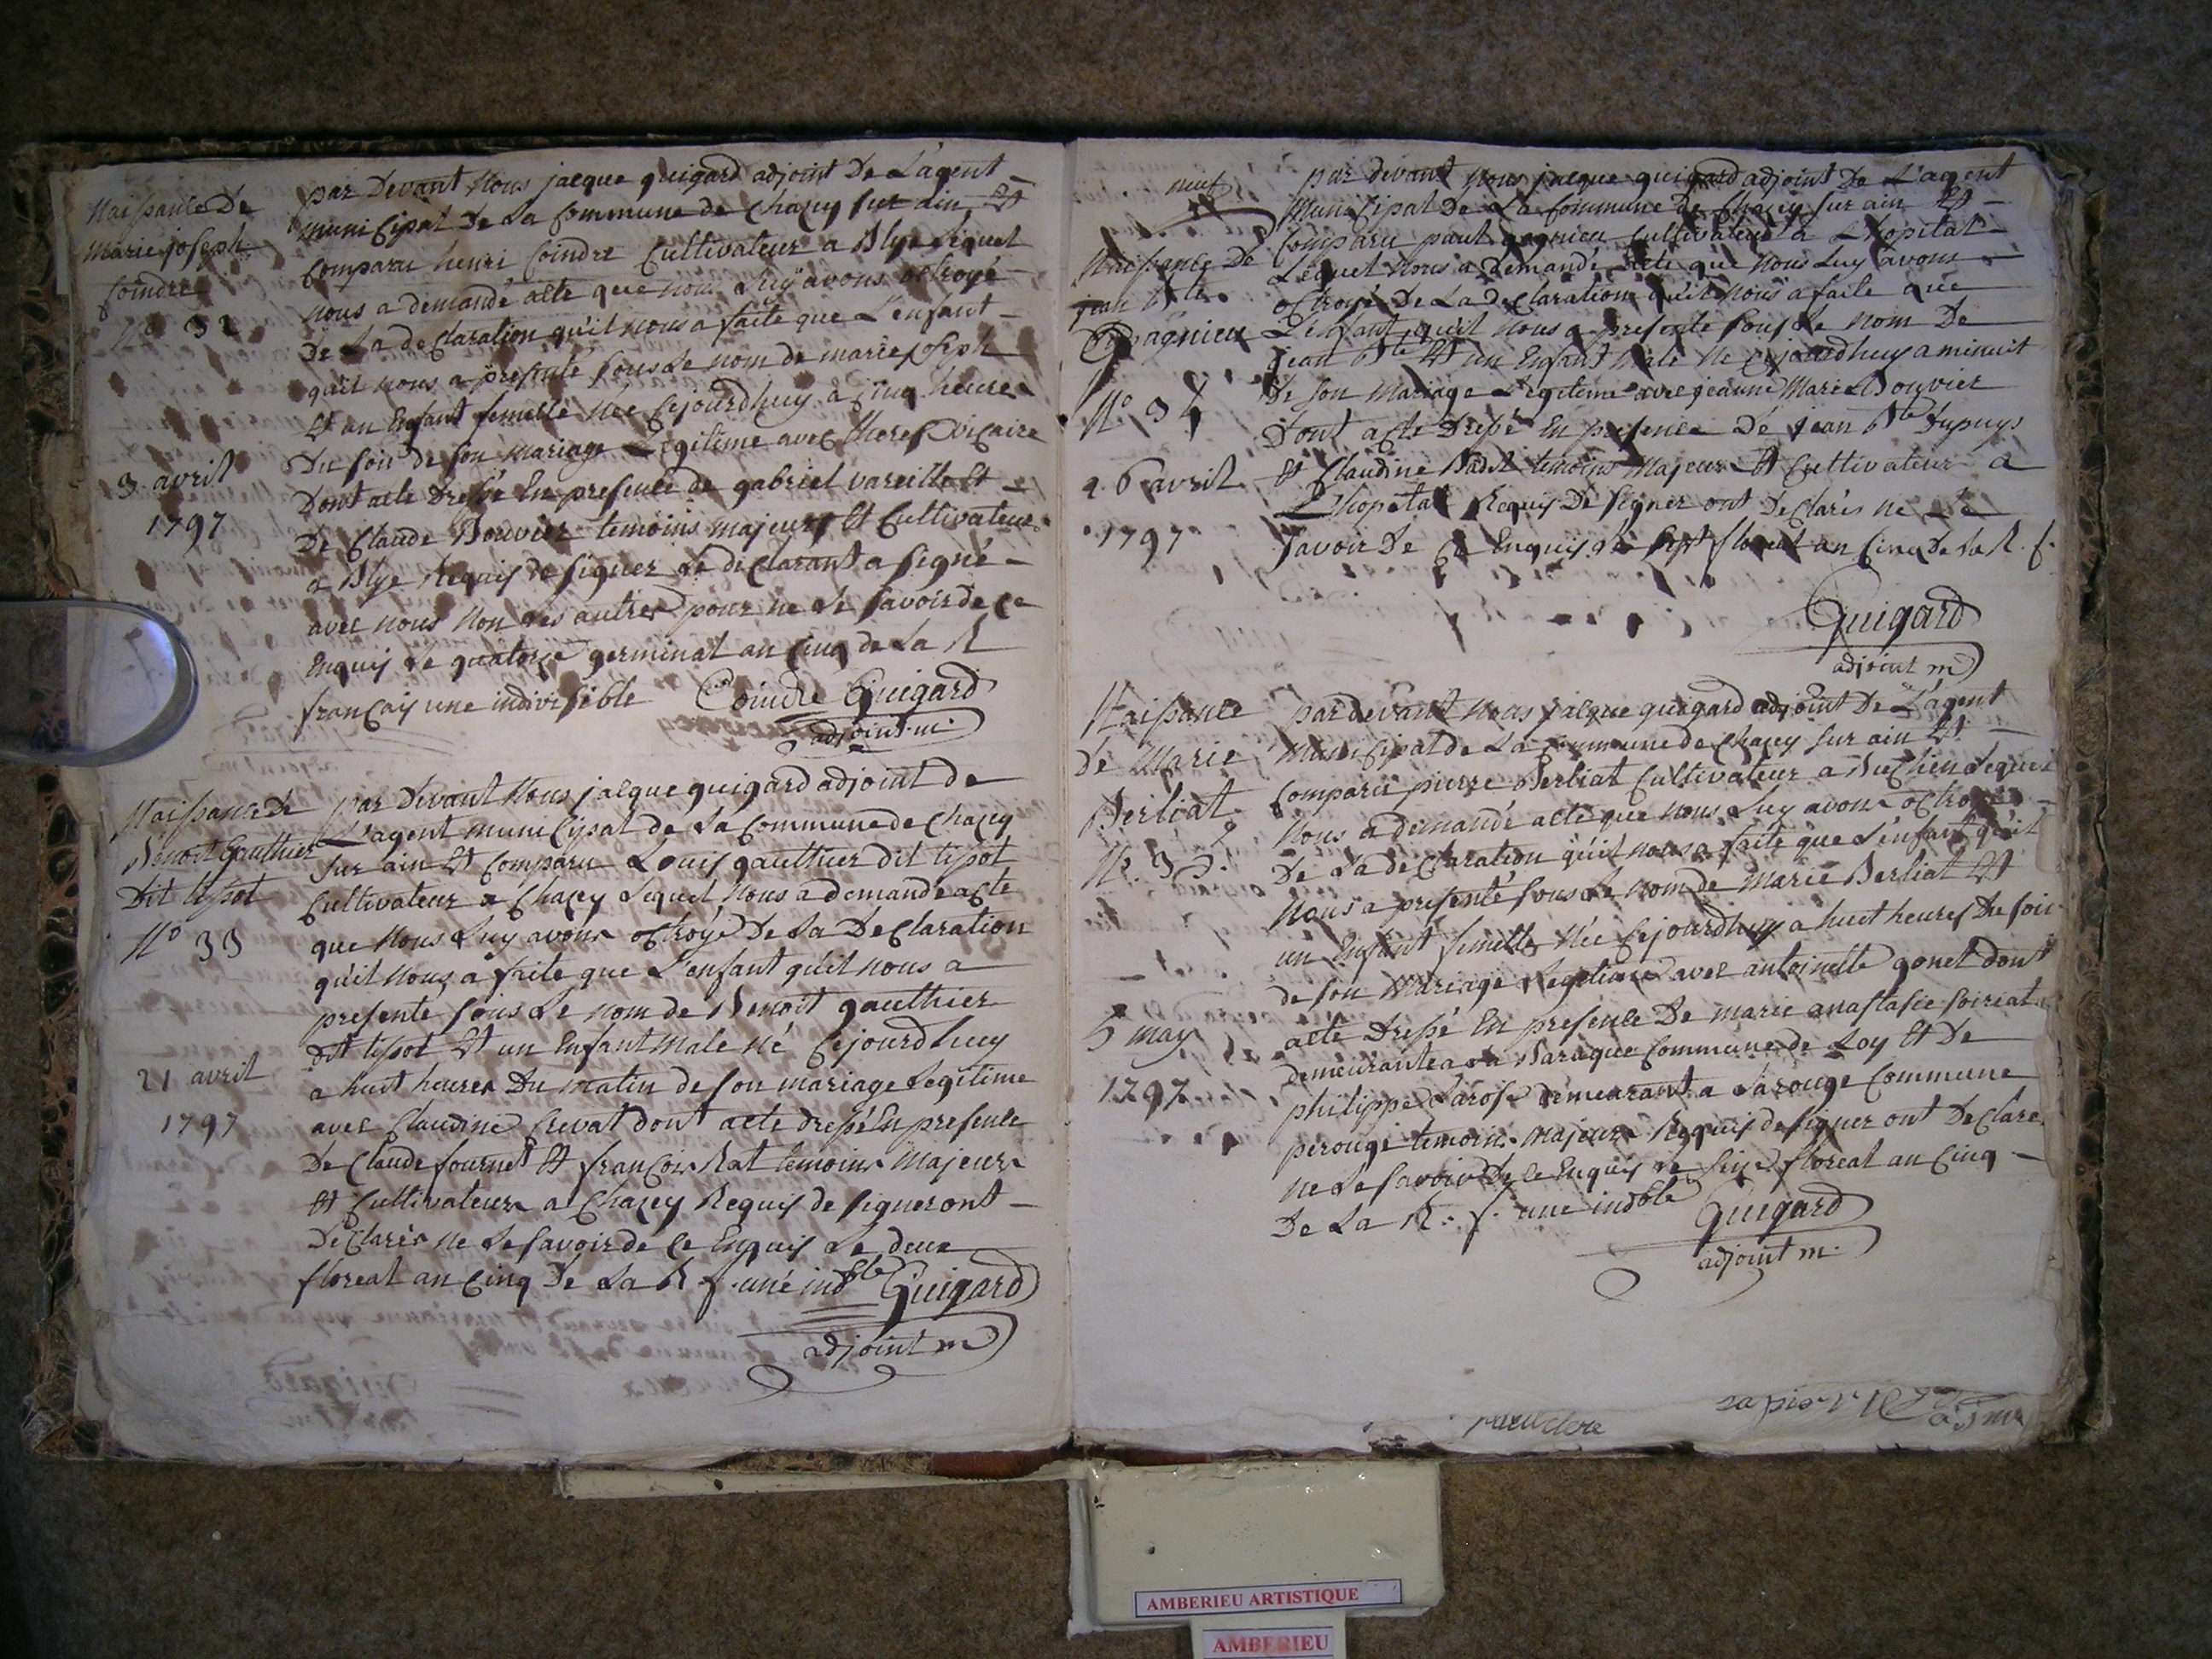 Naissance De
marie joseph
Coindre
No 32
3 avril
1797
par Devant Nous jacque guigard adjoint De L'agent
municipal De La Commune de Chazey sur ain Et
Comparu henri Coindre Cultivateur a Blye Lequel
nous a demandé acte que nous Luy avons octroyé
De La declaration qu'il nous a faite que L'enfant
qu'il nous a presenté sous Le nom de marie joseph
Et un Enfant femelle Née Cejourdhuy a Cinq heures
Du soir de son mariage Légitime avec theres vicaire
Dont acte Dressé En presence de gabriel vareille Et
De Claude Bouvier temoins majeurs Et Cultivateur
a Blye Requis de signer Le declarant a signé
avec nous Non Les autres pour ne Le savoir de ce
Enquis Le quatorze germinal an Cinq de La R
français une indivisible Coindre Guigard
adjoint m.
Naissance de
Benoit Gauthier
Dit tipot
No 33
21 avril
1797
par Devant Nous jacque guigard adjoint de
L'agent municipal de La Commune de Chazey
sur ain Et Comparu Louis gauthier dit tipot
Cultivateur a Chazey Lequel Nous a demandé acte
que Nous Luy avons octroyé De La Declaration
qu'il Nous a faite que L'enfant qu'il nous a
presenté sous Le nom de Benoit gauthier
dit tipot Et un Enfant Male Né Cejourdhuy
a huit heures Du matin de son mariage Legitime
avec Claudine Crevat dont acte dressé En presence
De Claude fournet Et françois Rat temoins Majeurs
Et Cultivateurs a Chazey Requis de signer ont
Declarés ne Le savoir de Ce Enquis Le deux
floreal an Cinq De La R f. une indble Guigard
adjoint m
neuf
Naissance De
jean Bte
Gagnieu
No 34
26 avril
1797
par devant Nous jacque guigard adjoint De L'agent
Municipal De La Commune De Chazey sur ain Et
Comparu paul gagnieu Cultivateur a L'hopital
Lequel Nous a Demandé acte que Nous Luy avons
octroyé De La declaration qu'il Nous a faite que
L'enfant qu'il Nous a presenté sous Le nom De
jean Bte Et un Enfant Male Né Cejourdhuy a minuit
De son mariage Légitime avec jeanne Marie Bouvier
Dont acte Dressé En presence De jean Bte Dupuys
Et Claudine temoins Majeur Et Cultivateur a
L'hopital Requis De signer ont Declarés ne Le
savoir De Ce Enquis Le sept floreal an Cinq De La R. f.
Guigard
adjoint m
Naissance
de Marie
Berliat
No. 35.
5 may
1797
par devant Nous jacque guigard adjoint De L'agent
Municipal de La Commune de Chazey sur ain Et
Comparu pierre Berliat Cultivateur a Luchien Lequel
Nous a demandé acte que nous Luy avons octroyé
De La declaration qu'il nous a faite que L'enfant qu'il
Nous a presenté sous Le nom de Marie Berliat Et
un Enfant femelle Née Cejourdhuy a huit heures Du soir
de son Mariage Legitime avec antoinette gonet dont
acte Dressé En presence De marie anastasie soiriat
demeurante a La Baraque Commune de Loy Et De
philippe Larose demeurant a Larouge Commune
perouge temoins Majeurs Requis de signer ont Declaré
ne Le savoir De Ce Enquis Le seize floreal an Cinq
De La R. f. une indble Guigard
adjoint m.
AMBERIEU ARTISTIQUE
AMBERIEU